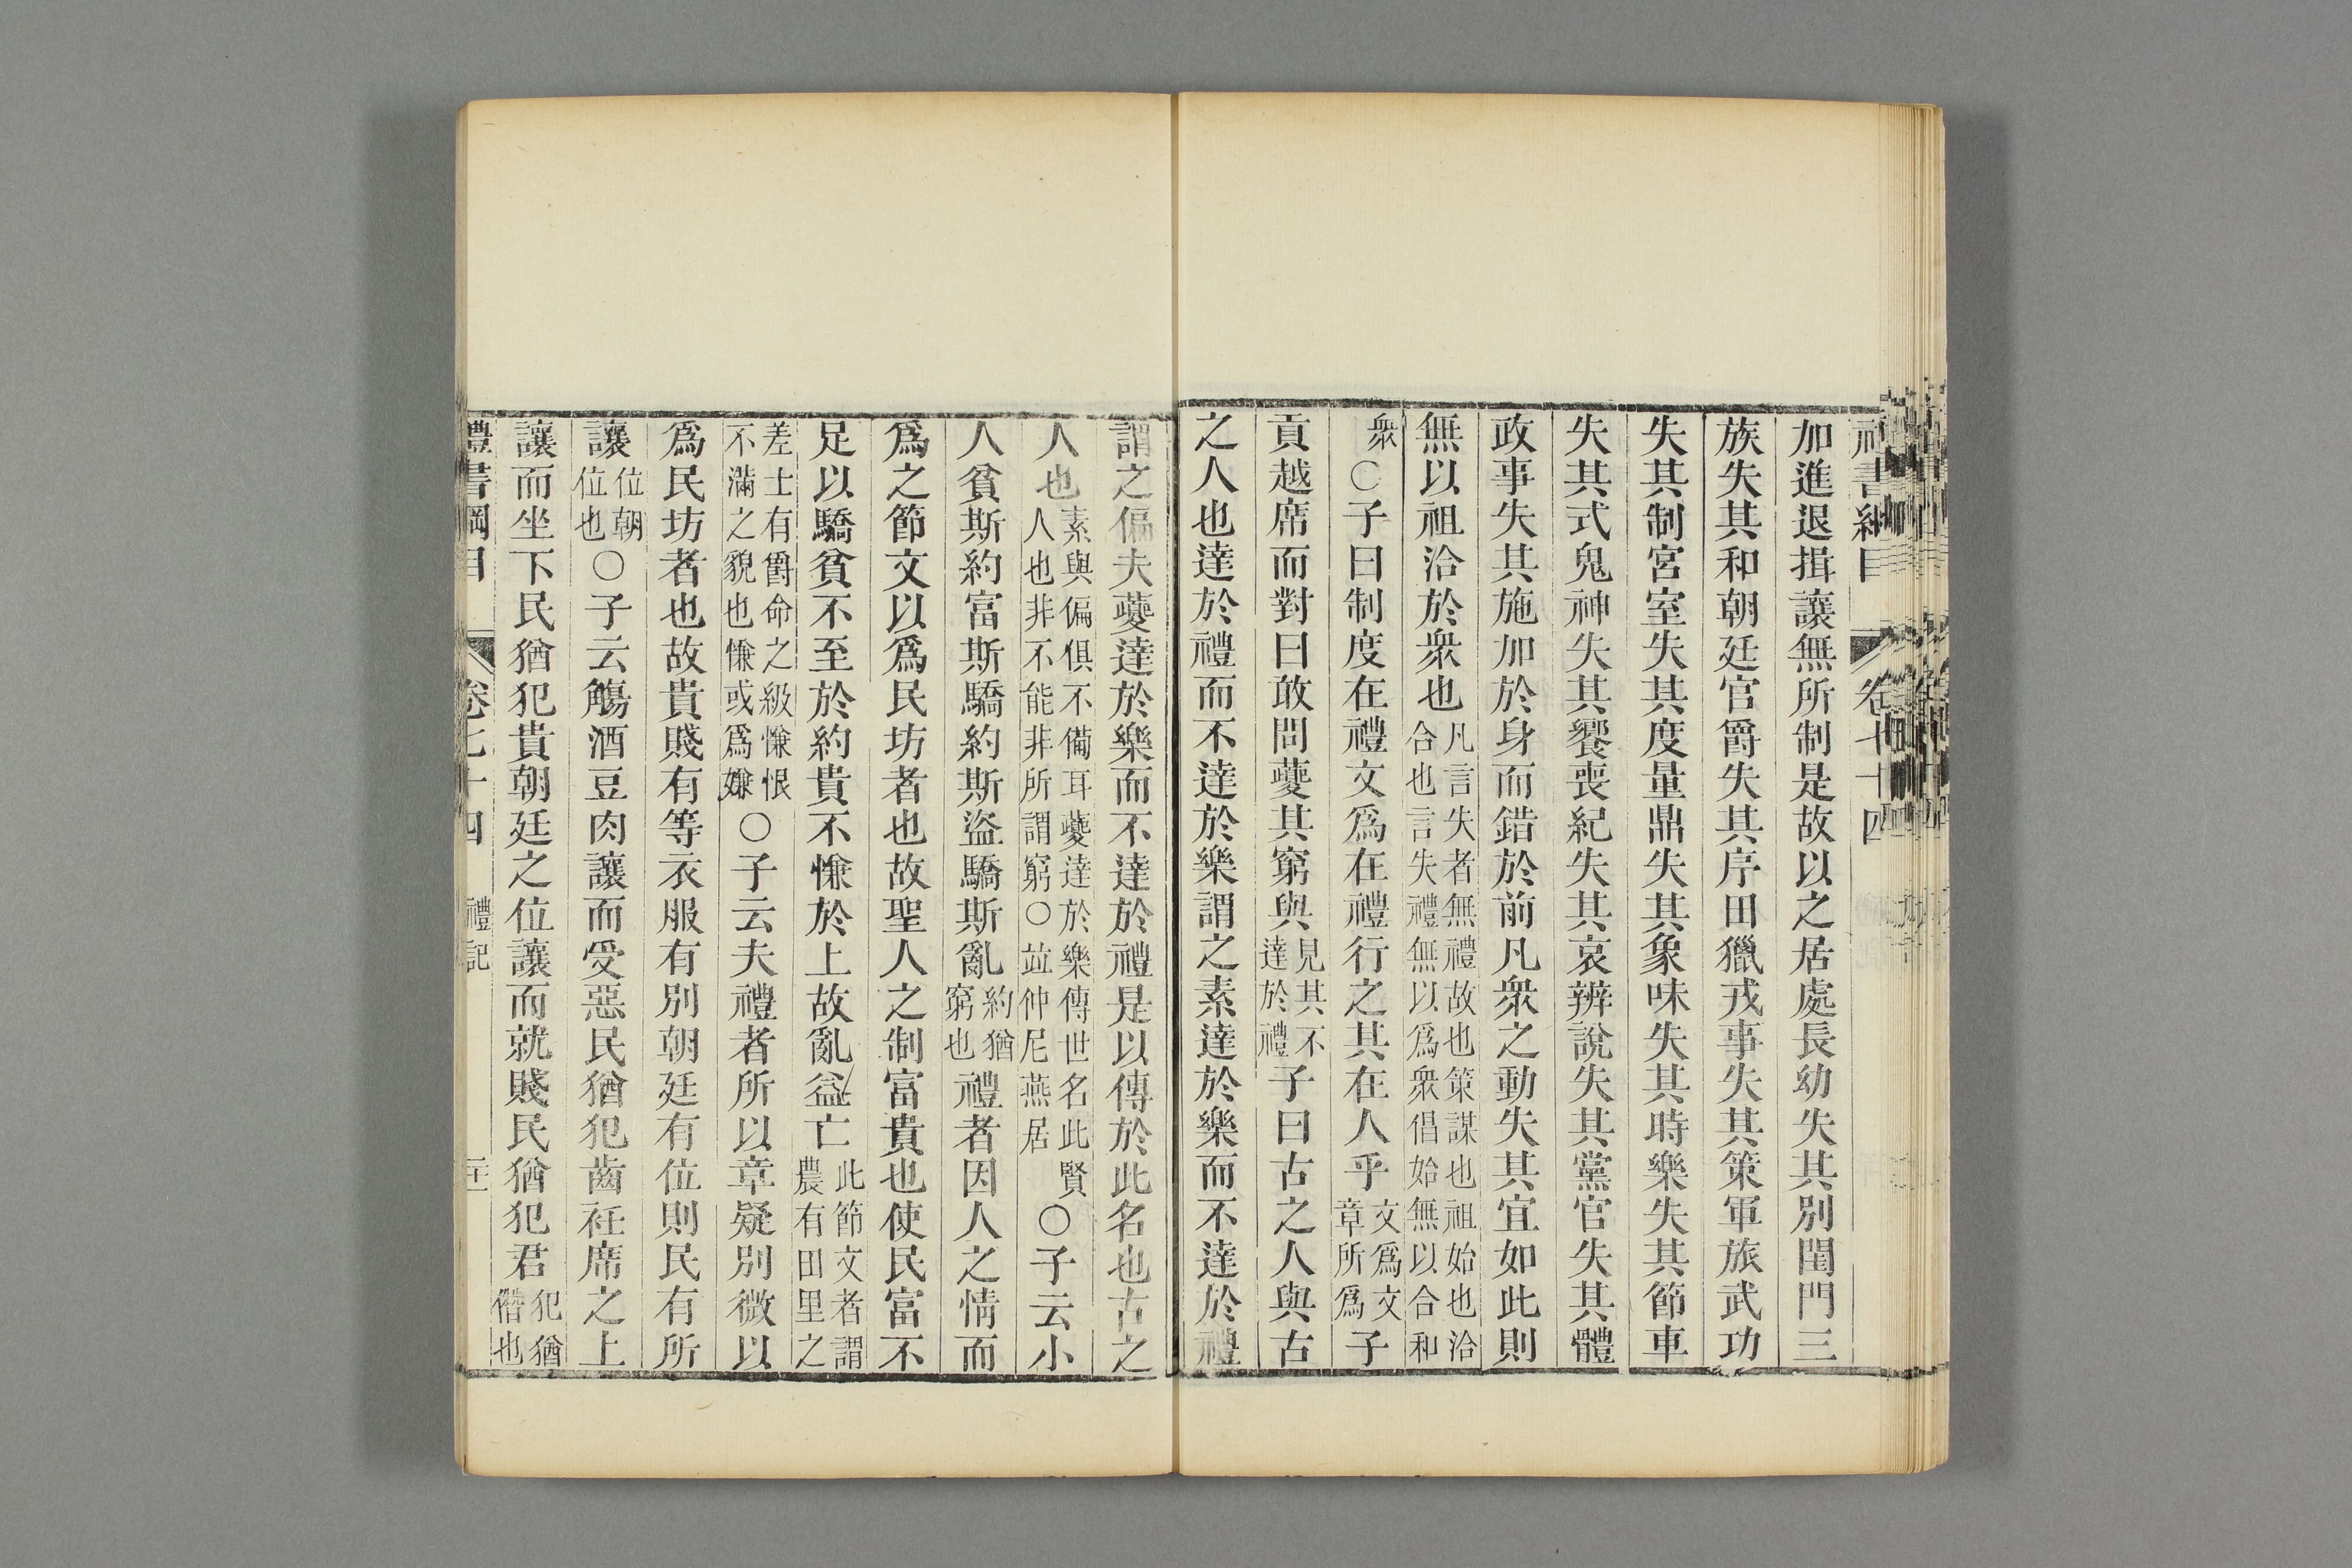 禮書綱目 卷七十四
加進退揖讓無所制是故以之居處長幼失其別閨門三
族失其和朝廷官爵失其序田獵戎事失其策軍旅武功
失其制宮室失其度量鼎失其象味失其時樂失其節車
失其式鬼神失其饗喪紀失其哀辨說失其黨官失其體
政事失其施加於身而錯於前凡衆之動失其宜如此則
無以祖洽於衆也凡言失者無禮故也策謀也祖始也洽合也言失禮無以爲衆倡始無以合和
衆○子曰制度在禮文爲在禮行之其在人乎文爲文章所爲子
貢越席而對曰敢問夔其窮與見其不達於禮子曰古之人與古
之人也達於禮而不達於樂謂之素達於樂而不達於禮
謂之偏夫夔達於樂而不達於禮是以傳於此名也古之
人也素與偏俱不備耳夔達於樂傳世名此賢人也非不能非所謂窮○竝仲尼燕居○子云小
人貧斯約富斯驕約斯盜驕斯亂約猶窮也禮者因人之情而
爲之節文以爲民坊者也故聖人之制富貴也使民富不
足以驕貧不至於約貴不慊於上故亂益亡此節文者謂農有田里之
差士有爵命之級慊恨不滿之貌也慊或爲嫌○子云夫禮者所以章疑別微以
爲民坊者也故貴賤有等衣服有別朝廷有位則民有所
讓位朝位也○子云觴酒豆肉讓而受惡民猶犯齒衽席之上
讓而坐下民猶犯貴朝廷之位讓而就賤民猶犯君犯猶僭也
禮書綱目 卷七十四 禮記